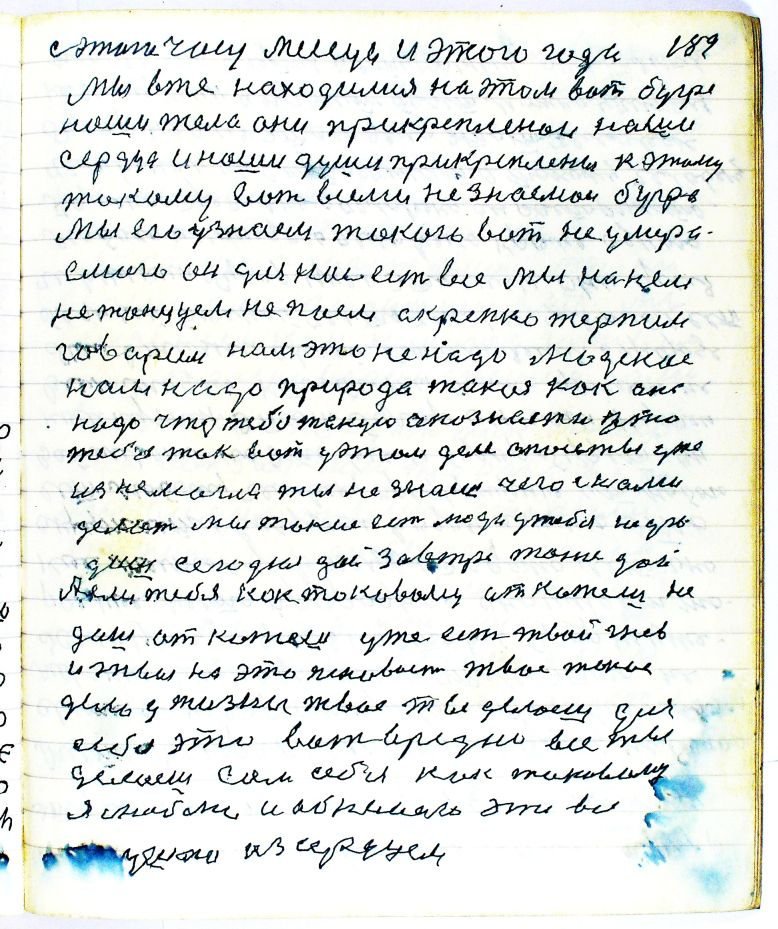 с этого часу месеца и этого года 189
Мы вже находимия на этом вот бугре
наши тела они прикрепленаи наши
сердца и наши души прикреплены к этому
такому вот всеми не знаемои бугре
Мы его узнаем такого вот не умира-
емого он для нас ест все мы на нем
не танцуем не поем а крепко терпим
говарим нам это не надо людское
нам надо природа такая как она
надо что тебе такую
тебе так вот у этом деле ты уже
из немогла ты не знаеш чего с нами
делат мы такие ест люди у тебя
сегодня дай завтра тоже дай
А тебя как таковому откажеш не
даш откажеш уже ест твой гнев
и ты на это твое такое
дело у жизны твое ты делаеш для
себя это вот вредно все ты
делаеш сам себя как таковому
Я и все
из сердцем